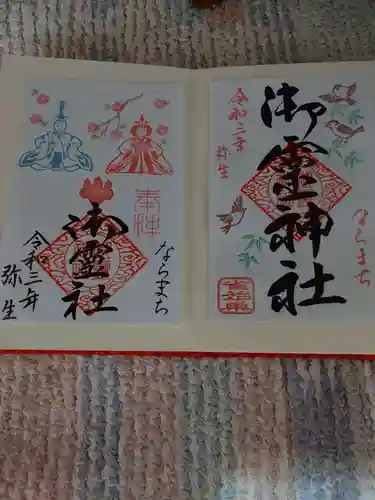 御靈神社
令和三年
弥生
ならまち
雀始巣
奉拝
御靈社
ならまち
令和三年
弥生